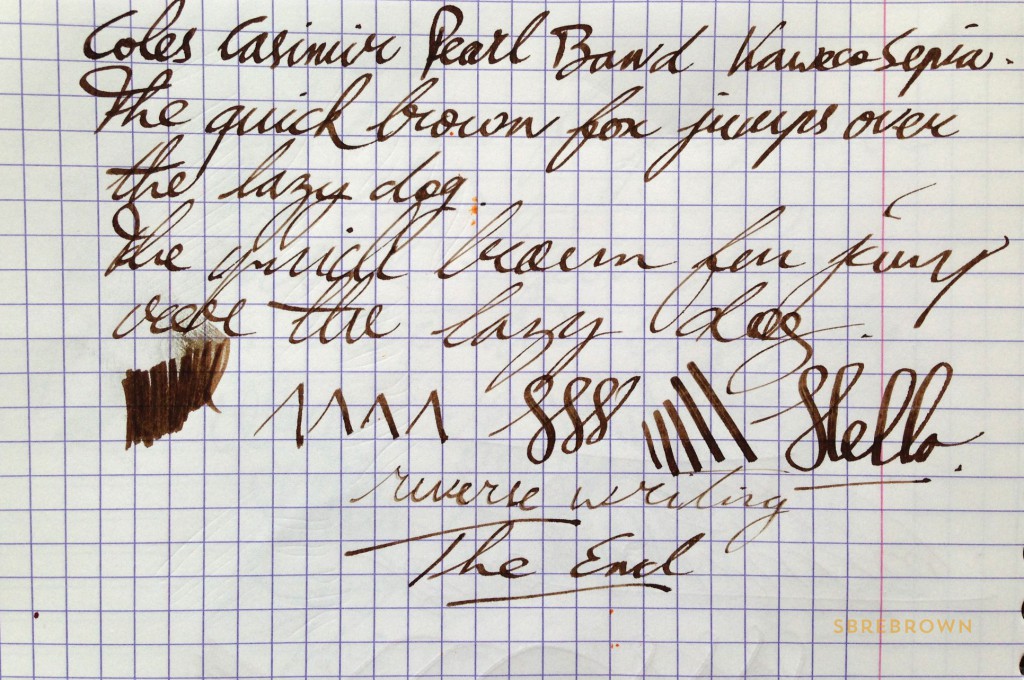 Coles Casimir Pearl Band Kaweco Sepia.
The quick brown fox jumps over
the lazy dog.
the quick brown fox jump
over the lazy dog.
Hello.
reverse writing
The End
SBREBROWN